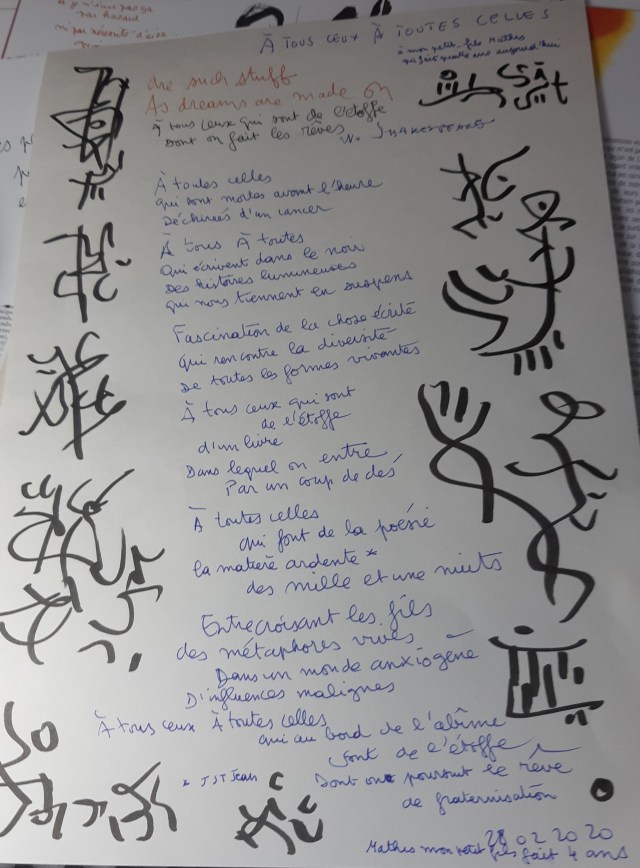 À TOUS CEUX À TOUTES CELLES
à mon petit-fils Mathis
qui fait quatre ans aujourd'hui
are such stuff
As dreams are made on
À tous ceux qui sont de l'étoffe
Dont on fait les rêves W. SHAKESPEARE
À toutes celles
qui sont mortes avant l'heure
Déchirées d'un cancer
À tous À toutes
Qui écrivent dans le noir
Des histoires lumineuses
qui nous tiennent en suspens
Fascination de la chose écrite
Qui rencontre la diversité
De toutes les formes vivantes
À tous ceux qui sont
de l'étoffe
d'un livre
Dans lequel on entre
Par un coup de dés
À toutes celles
qui font de la poésie
la matière ardente *
des mille et une nuits
Entrecroisant les fils
des métaphores vives
Dans un monde anxiogène
D'influences malignes
À tous ceux À toutes celles
qui au bord de l'abîme
sont de l'étoffe
* JST Jean
Dont on poursuit le rêve
de fraternisation
28 02 2020
Mathis mon petit fils fait 4 ans